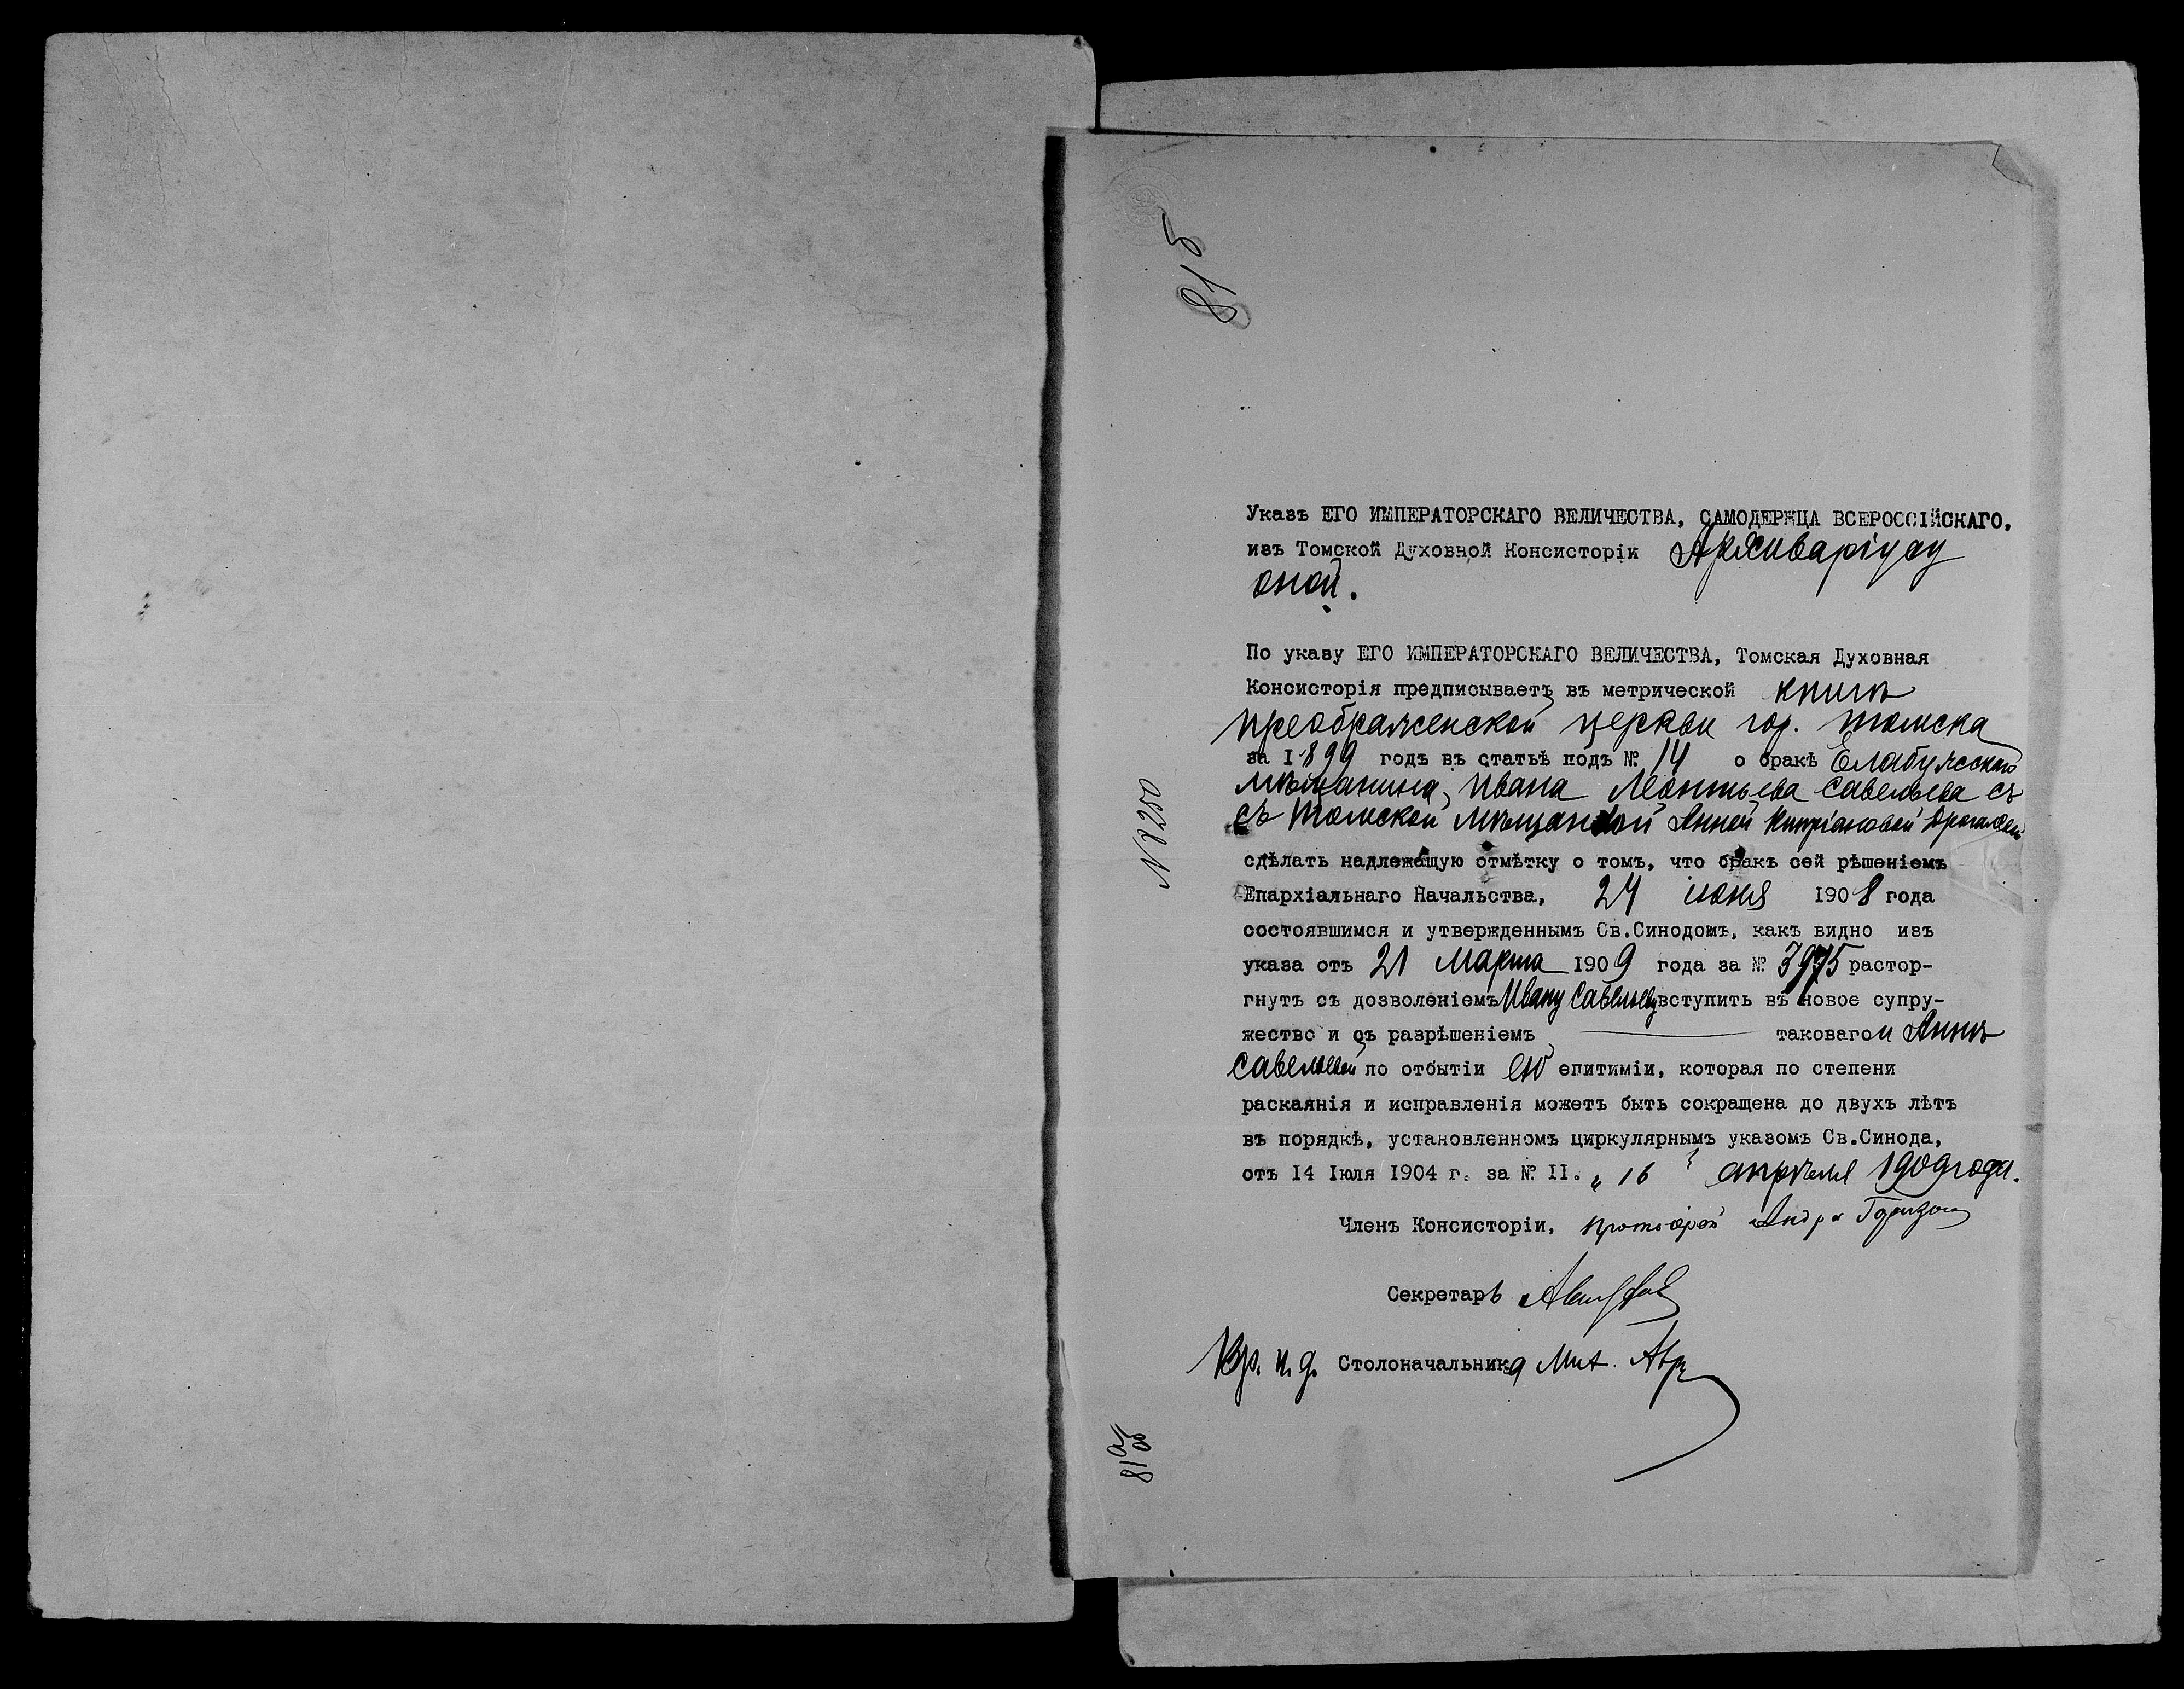 815
Указъ ЕГО ИМПЕРАТОРСКАГО ВЕЛИЧЕСТВА, САМОДЕРЖЦА ВСЕРОССІЙСКАГО,
изъ Томской Духовной Консисторіи Архиваріусу
оной.
По указу ЕГО ИМПЕРАТОРСКАГО ВЕЛИЧЕСТВА, Томская Духовная
Консисторія предписываетъ въ метрической книгѣ
Преображенской церкви гор. Томска
за 1899 годъ въ статьѣ подъ № 14 о бракѣ Елабужскаго
мѣщанина, Ивана Леонтьева Савельева съ
съ Томской мѣщанкой Анной Кипріановой
сдѣлать надлежащую отмѣтку о томъ, что бракъ сей рѣшеніемъ
Епархіальнаго Начальства, 24 іюня 1908 года
состоявшимся и утвержденнымъ Св.Синодомъ, какъ видно изъ
указа отъ 21 Марта 1909 года за № 3975 растор-
гнутъ съ дозволеніемъ Ивану Савельеву вступить въ новое супру-
жество и съ разрѣшеніемъ таковаго и Аннѣ
Савельевой по отбытіи ею епитиміи, которая по степени
раскаянія и исправленія можетъ быть сокращена до двухъ лѣтъ
въ порядкѣ, установленномъ циркулярнымъ указомъ Св.Синода,
отъ 14 Іюля 1904 г. за № II. „ 16 " апрѣля 1909 года.
Членъ Консисторіи, протоіерей
Секретарь
Вр. и. д. Столоначальника Мих.
№ 8250